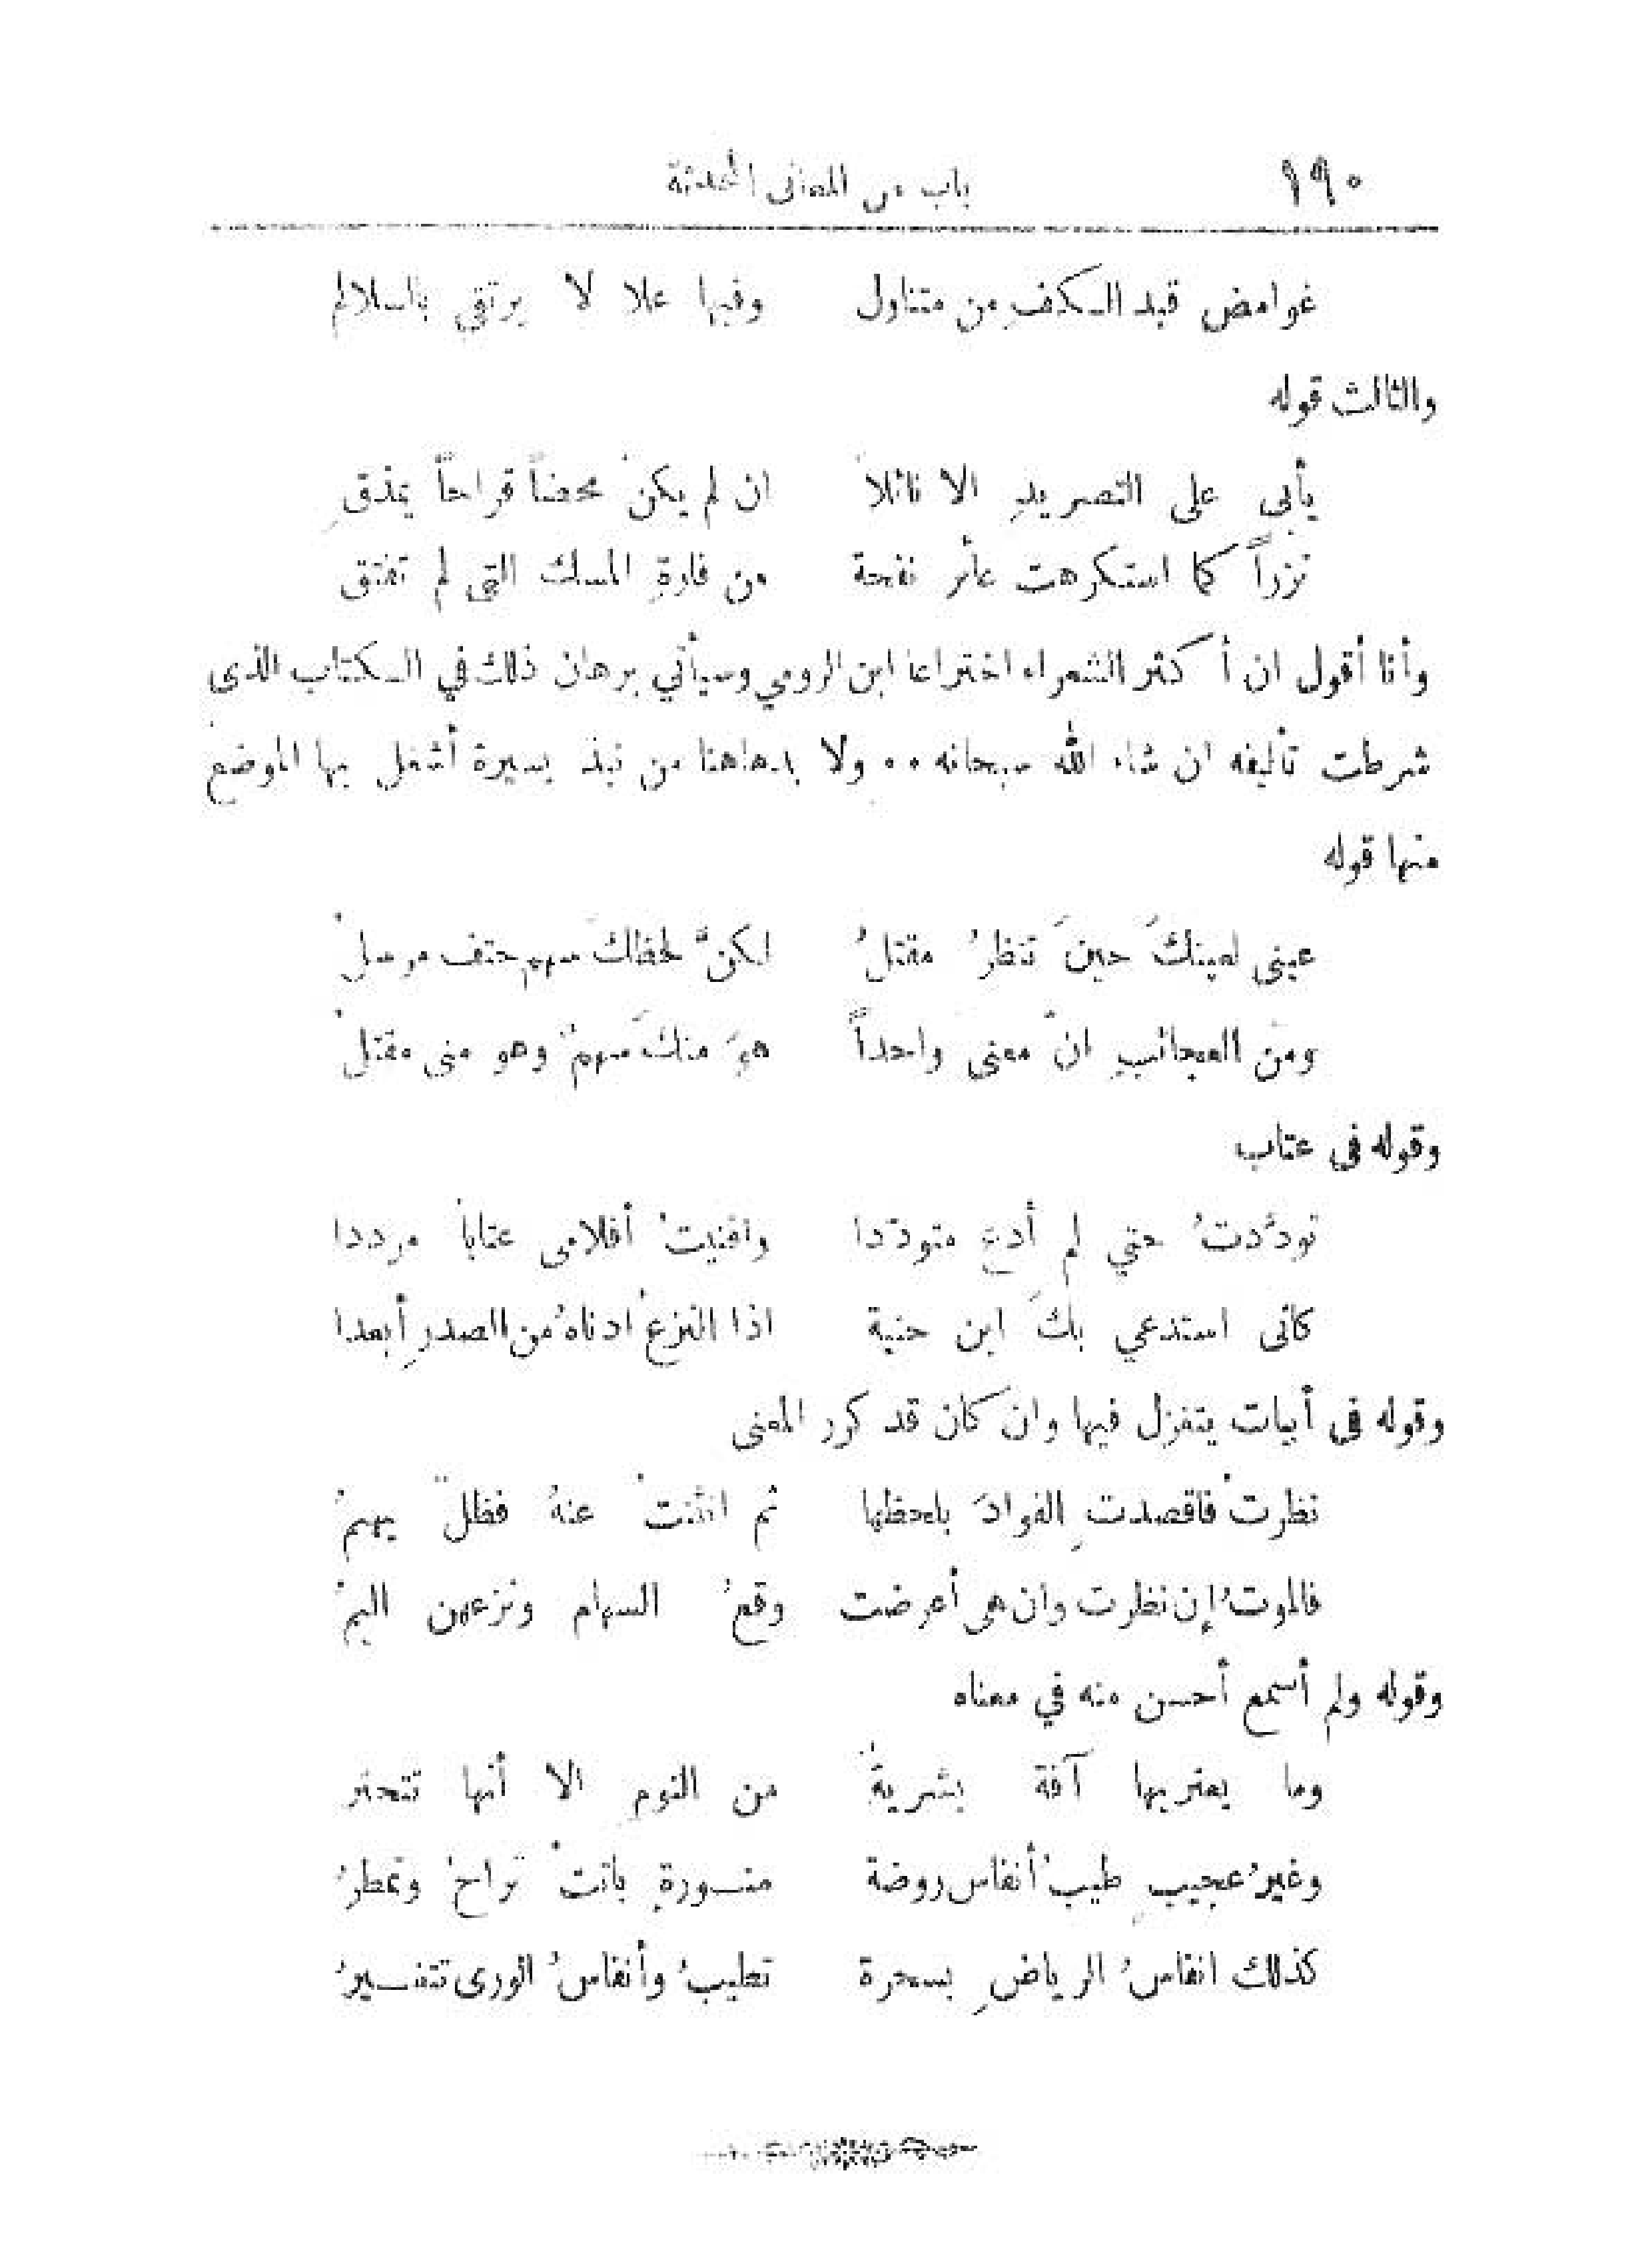 ١٩٠ باب من المعاني المحدثة
غوامض قيد الكف من متناول وفيها علا لا يرتقي بالسلالم
والثالث قوله
يأبى على التصريدِ الا نائلاً ان لم يكنْ محضاً قراحاً يمذقِ
نزراً كما استكرهت عائر نفحة من فارةِ المسك التي لم تفتق
وأنا أقول ان أكثر الشعراء اختراعا ابن الرومي وسيأتي برهان ذلك في الكتاب الذى
شرطت تأليفه ان شاء الله سبحانه .. ولا بد هاهنا من نبذ يسيرة أشغل بها الموضع
منها قوله
عيني لعينكَ حينَ تنظرُ مقتلُ لكنَّ لحظكَ سهم حتف مرسلُ
ومن العجائبِ انّ معنى واحداً هوَ منكَ سهمٌ وهو مني مقتلُ
وقوله فى عتاب
تودَّدتُ حتي لم أدعْ متودّدا وافنيتُ أقلامى عتاباً مرددا
كأنى استدعي بكَ ابن حنية اذا النزعُ ادناهُ من الصدرِ أبعدا
وقوله فى أبيات يتغزل فيها وان كان قد كرر المعنى
نظرتْ فاقصدتِ الفوادَ بلحظها ثم انثنتْ عنهُ فظلّ يهيمُ
فالموتُ إن نظرت وان هى أعرضت وقعُ السهام ونزعهن اليمُ
وقوله ولم أسمع أحسن منه في معناه
وما يعتريها آفة بشريةٌ من النومِ الا أنها تتخثر
وغيرُ عجيبٍ طيبُ أنفاس روضة منورةٍ باتتْ تراحُ وتمطرُ
كذلك انفاسُ الرياضِ بسحرة تطيبُ وأنفاسُ الورى تتغيرُ